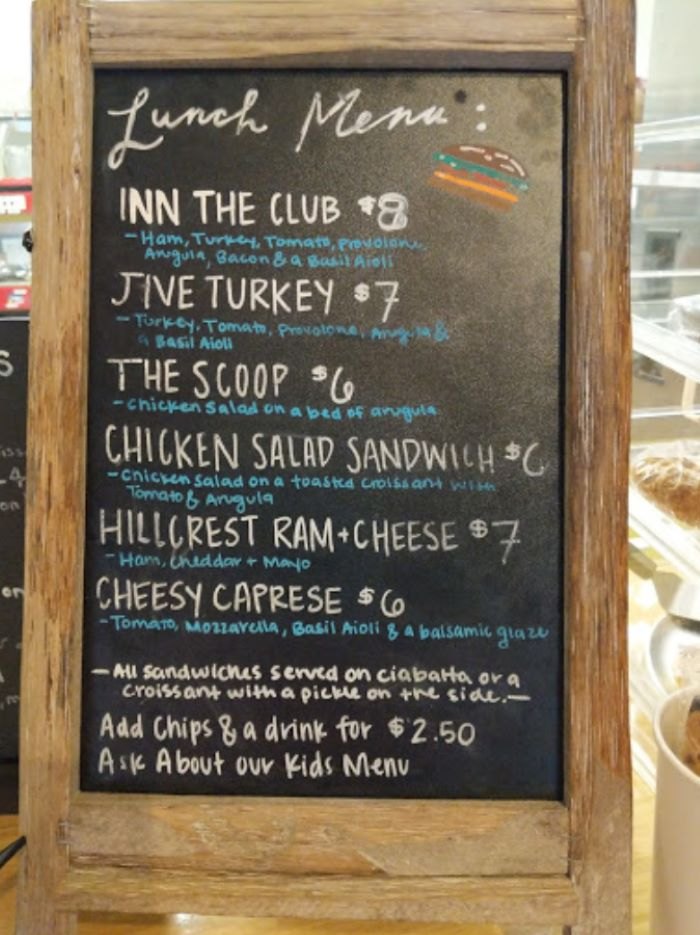 Lunch Menu:
INN THE CLUB $8
- Ham, Turkey, Tomato, Provolone,
Arugula, Bacon & a Basil Aioli
JIVE TURKEY $7
- Turkey, Tomato, Provolone, Arugula &
a Basil Aioli
THE SCOOP $6
- Chicken Salad on a bed of arugula
CHICKEN SALAD SANDWICH
- Chicken Salad on a toasted croissant with
Tomato & Arugula
HILLCREST RAM + CHEESE $7
- Ham, Cheddar + Mayo
CHEESY CAPRESE $6
- Tomato, Mozzarella, Basil Aioli & a balsamic glaze
- All sandwiches served on ciabatta or a
croissant with a pickle on the side. -
Add Chips & a drink for $2.50
Ask About our Kids Menu